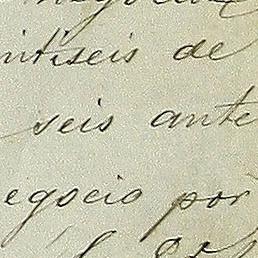 intiseis de
seis ante
egocio por